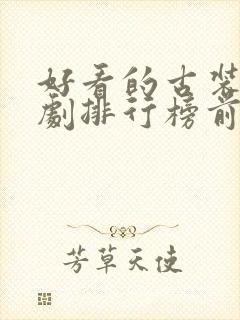 好看的古装
劇排行榜前
芳草天使